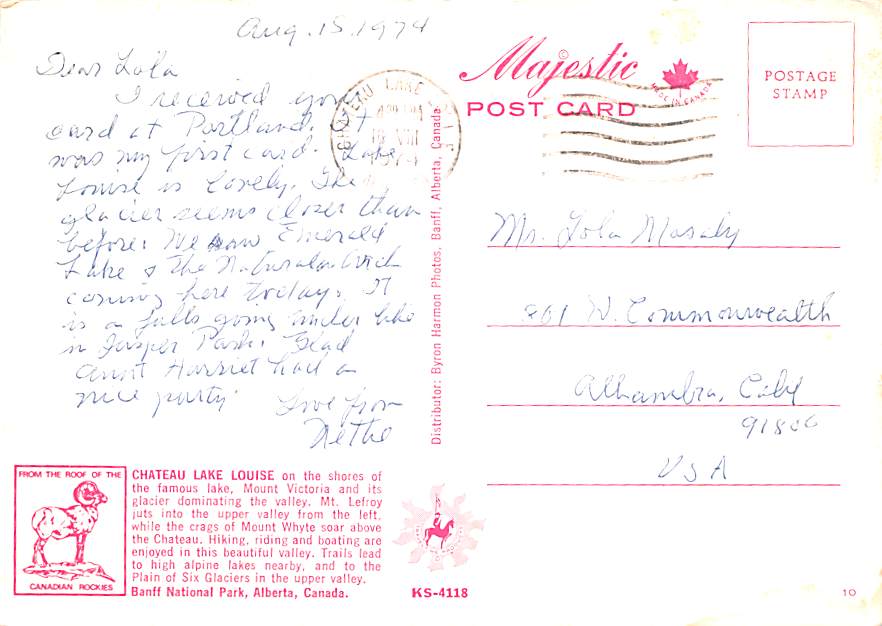 Aug. 15, 1974
Dear Lola
I received your
card at Portland. It
was my first card. Lake
Louise is lovely. The
glacier seems closer than
before. We saw Emerald
Lake & the Natural Arch
coming here today. It
is a falls going under like
in Jasper Park. Glad
Aunt Harriet had a
nice party.
Love from
Nettie
CHATEAU LAKE
VIII
Majestic
©
MADE IN CANADA
POST CARD
POSTAGE
STAMP
Lola
801 W. Commonwealth
Alhambra, Calif
USA
Distributor: Byron Harmon Photos, Banff, Alberta, Canada
FROM THE ROOF OF THE
CANADIAN ROCKIES
CHATEAU LAKE LOUISE on the shores of
the famous lake, Mount Victoria and its
glacier dominating the valley. Mt. Lefroy
juts into the upper valley from the left,
while the crags of Mount Whyte soar above
the Chateau. Hiking, riding and boating are
enjoyed in this beautiful valley. Trails lead
to high alpine lakes nearby, and to the
Plain of Six Glaciers in the upper valley.
Banff National Park, Alberta, Canada.
KS-4118
10